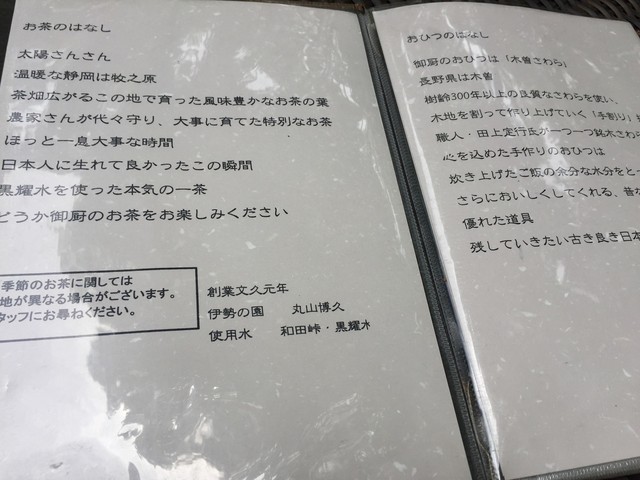 お茶のはなし
太陽さんさん
温暖な静岡は牧之原
茶畑広がるこの地で育った風味豊かなお茶の葉
農家さんが代々守り、大事に育てた特別なお茶
ほっと一息大事な時間
日本人に生れて良かったこの瞬間
黒耀水を使った本気の一茶
どうか御厨のお茶をお楽しみください
季節のお茶に関しては
地が異なる場合がございます。
タッフにお尋ねください。
創業文久元年
伊勢の園 丸山博久
使用水 和田峠・黒耀水
おひつのはなし
御厨のおひつは「木曽さわら」
長野県は木曽
樹齢300年以上の良質なさわらを使い、
木地を割って作り上げていく「手割り」
職人・田上定行氏が一つ一つ銘木さわら
心を込めた手作りのおひつは
炊き上げたご飯の余分な水分をとっ
さらにおいしくしてくれる、昔な
優れた道具
残していきたい古き良き日本